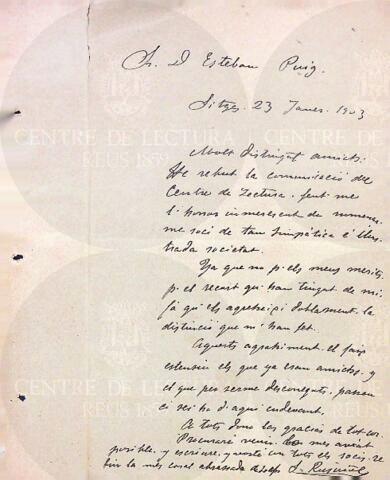 Sr. D Esteban Puig.
Sitges. 23 Janer. 1903
Molt distingit amich:
He rebut la comunicació del
Centre de Lectura, fent me
l'honor inmerescut de numenar
me soci de tan simpàtica é ilus
trada societat.
Ya que no p. els meus merits,
p. el recort qu'han tingut de mi
ja qu'els agraheixi doblament la
distinció que m'han fet.
Aquest agrahiment, el faig
extensiu els que ya eran amichs, y
el que per serme desconeguts, passan
á ser ho d'aqui endevant.
A tots dono las gracias de tot cor.
Procuraré venir lo mes aviat
posible, y escriure, y vosté con tots els socis, re
bin la mes coral abrassada de S. Rusiñol
CENTRE DE LECTURA
REUS 1859
CENTRE DE LECTURA
REUS 1859
CENTRE DE LECTURA
REUS 1859
CENTRE DE LECTURA
REUS 1859